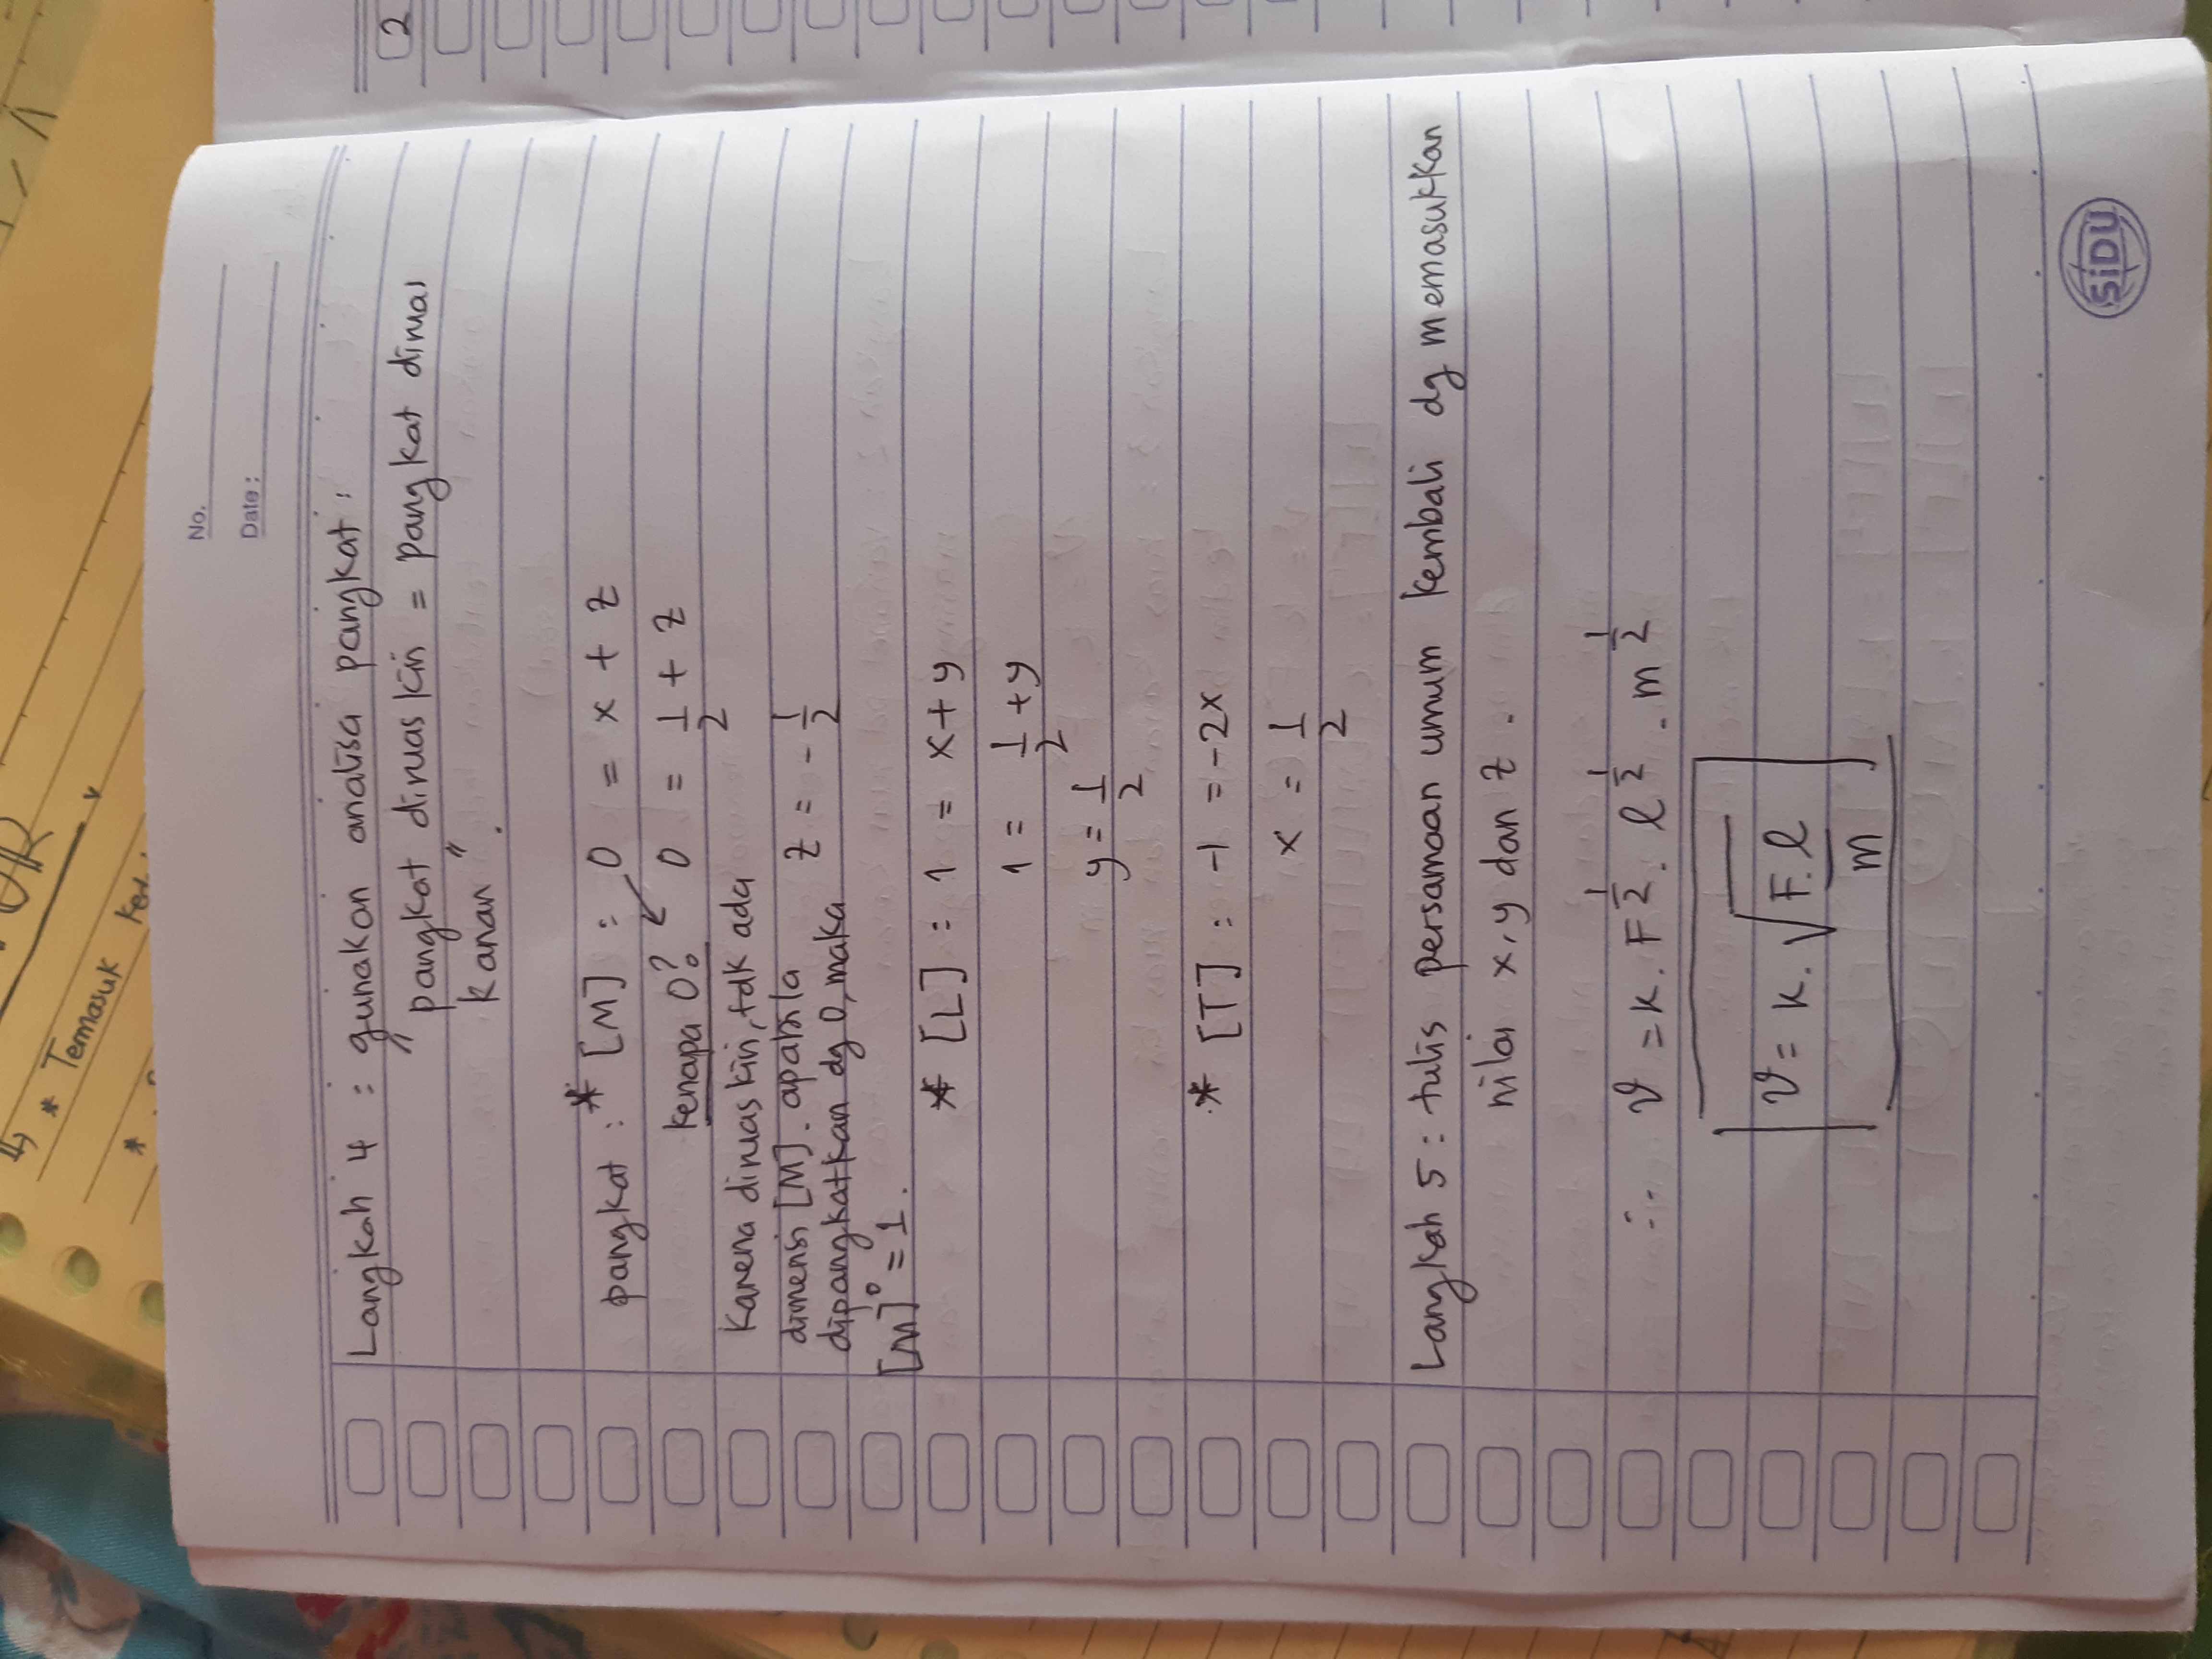 * Termasuk
*
No.
Date :
2
Langkah 4 : gunakan analisa pangkat :
" pangkat diruas kiri = pangkat diruas
kanan ".
pangkat : * [M] : 0 = x + z
kenapa 0? 0 = 1/2 + z
Karena diruas kiri, tdk ada
dimensi [M]. apabila z = - 1/2
dipangkatkan dg 0, maka
[M]⁰ = 1.
* [L] : 1 = x + y
1 = 1/2 + y
y = 1/2
* [T] : -1 = -2x
x = 1/2
Langkah 5 : tulis persamaan umum kembali dg memasukkan
nilai x, y dan z .
∴ v = k. F^1/2 . l^1/2 . m^1/2
v = k. √F.l/m
SiDU